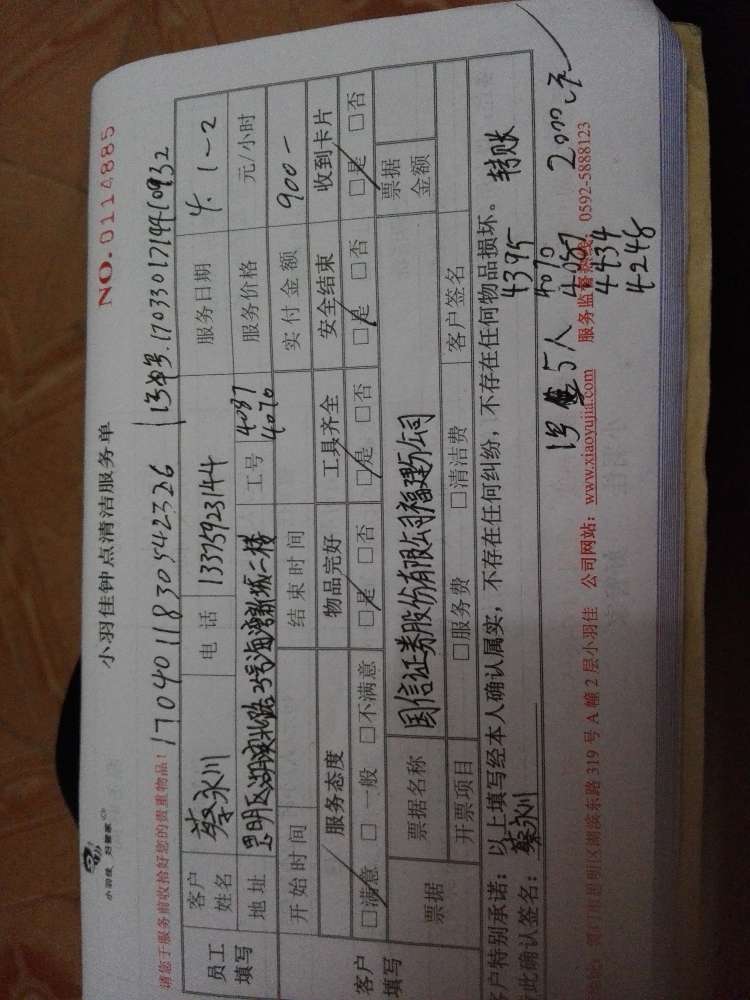 小羽佳 好管家
小羽佳钟点清洁服务单
NO. 0114885
请您于服务前收拾好您的贵重物品!
170401183054 2326
1703301714410932
员工填写
客户姓名 蔡永川 电话 13375923144 服务日期 4.1-2
地址 思明区湖滨北路 号海湾新城二楼 工号 4087 4070 服务价格 元/小时
开始时间 结束时间 实付金额 900-
客户填写
服务态度 物品完好 工具齐全 安全结束 收到卡片
□满意 □一般 □不满意 □是 □否 □是 □否 □是 □否 □是 □否
票据 票据名称 国信证券股份有限公司福建分公司 票据金额
开票项目 □服务费 □清洁费 客户签名
客户特别承诺: 以上填写经本人确认属实,不存在任何纠纷,不存在任何物品损坏。 转账
此确认签名: 蔡永川
4395
5人 4070 2000元
4087
4434
4248
思明区湖滨东路 319 号 A 幢 2 层小羽佳 公司网站: www.xiaoyujia.com 服务监督热线: 0592-5888123